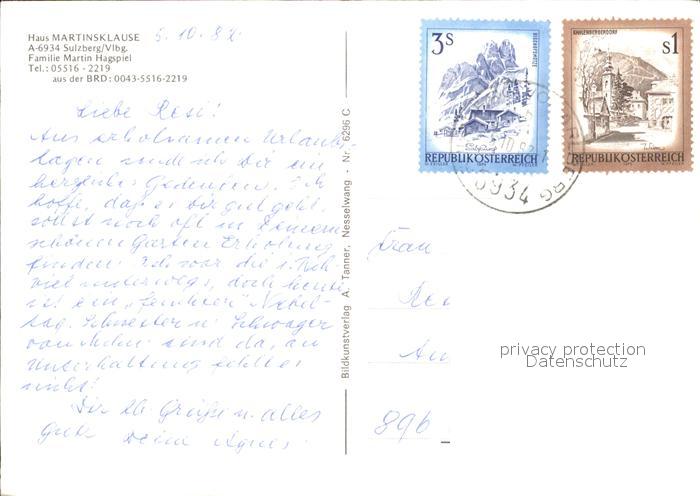 Haus MARTINSKLAUSE
A-6934 Sulzberg/Vlbg.
Familie Martin Hagspiel
Tel.: 05516 - 2219
aus der BRD: 0043-5516-2219
5.10.82
Liebe Resi!
Aus erholsamen Urlaubs-
tagen sende ich Dir ein
herzliches Gedenken. Ich
hoffe, daß es Dir gut geht,
sollst noch oft in Deinem
schönen Garten Erholung
finden. Ich war die
viel unterwegs, doch heute
ist ein "feuchter" Nebel-
tag. Schwester u. Schwager
sind da, an
Unterhaltung fehlt es
nicht!
Dir lb. Grüße u. alles
Gute Deine Agnes.
Bildkunstverlag A. Tanner, Nesselwang - Nr. 6296 C
3S
REPUBLIK ÖSTERREICH
KAHLENBERGERDORF
S1
Wien
REPUBLIK ÖSTERREICH
6934
Frau
Re
An
896
privacy protection
Datenschutz